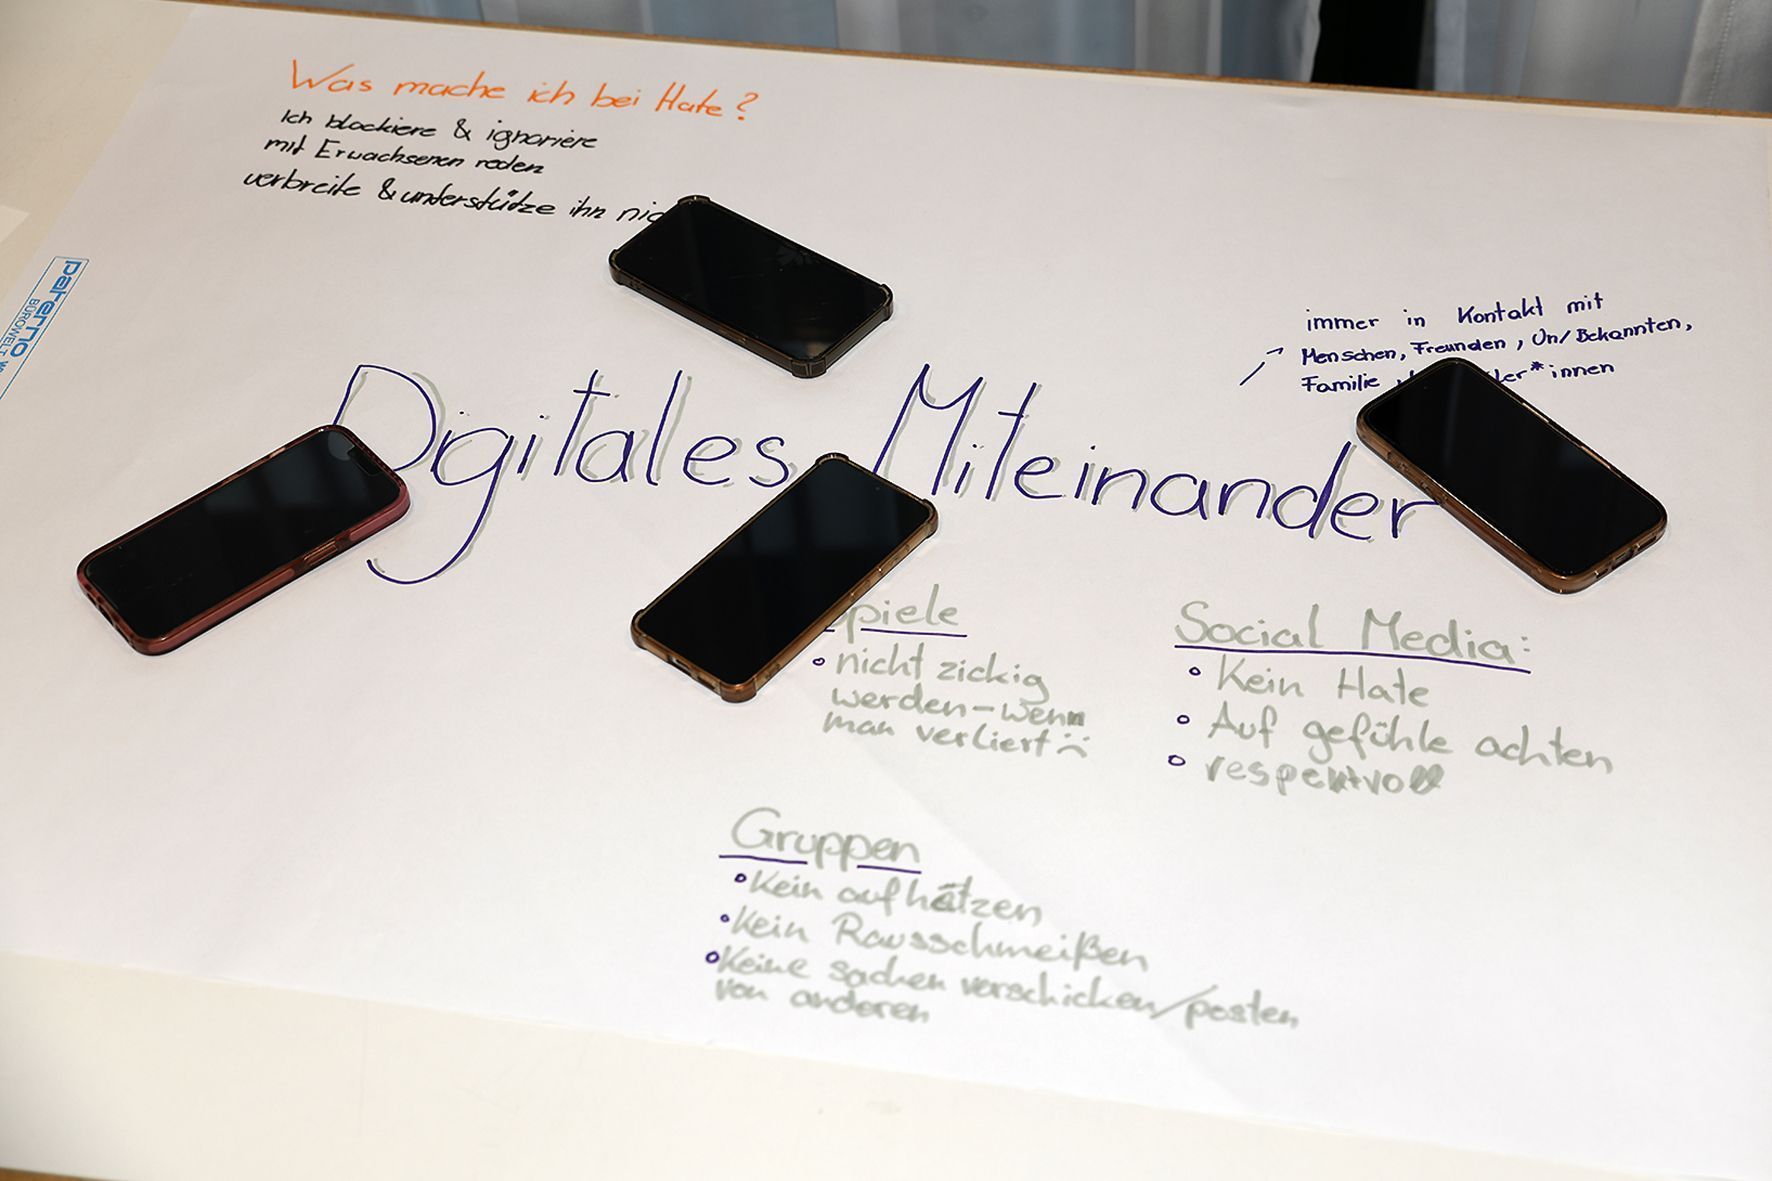 Was mache ich bei Hate?
Ich blockiere & ignoriere
mit Erwachsenen reden
verbreite & unterstütze ihn
paterno
BÜROWELT
immer in Kontakt mit
Menschen, Freunden, Un/Bekannten,
Familie,
Digitales Miteinander
piele
nicht zickig
werden - wenn
man verliert
Social Media:
Kein Hate
Auf gefühle achten
respektvoll
Gruppen
Kein aufhätzen
Kein Rausschmeißen
Keine sachen verschicken/posten
von anderen